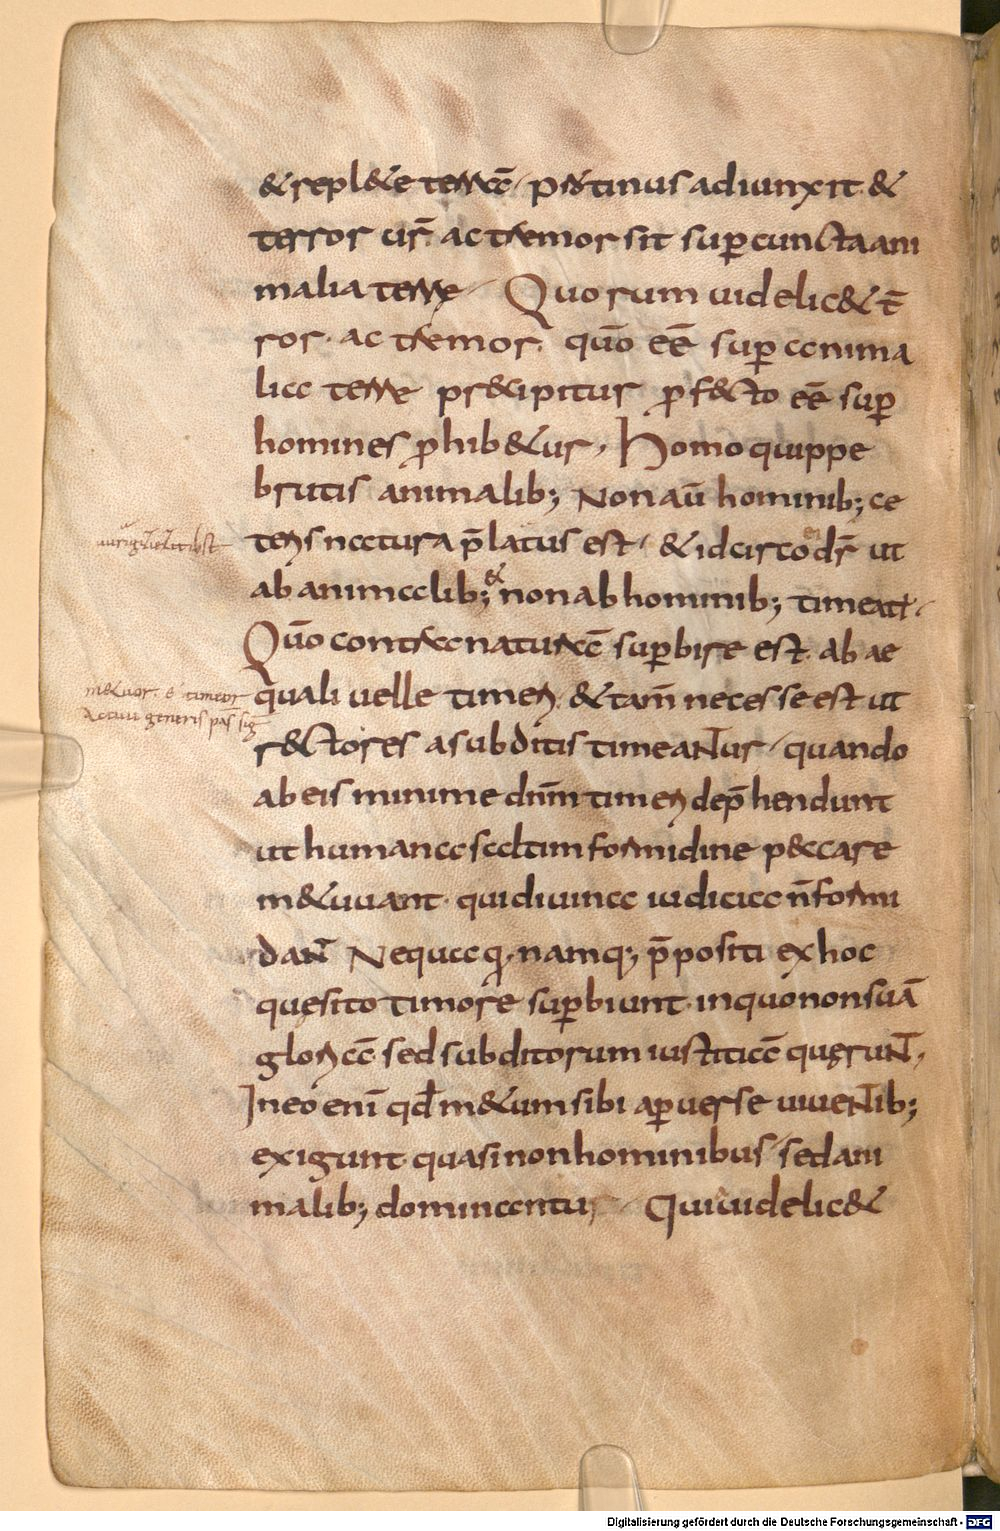 & repl&e terrā, protinus adiunxit. &
terror ur̄. ac tremor sit sup cuncta ani
malia terrę. Quorum uidelic& t̄
ror. ac tremor. quō eē sup anima
lia terrę pr&ipitur pf&cto eē sup
homines phib&ur, Homo quippe
brutis animalib; Non aū hominib; ce
teris natura p̄latus est, & idcirco ei dr̄ ut
ab animalib; & non ab hominib; timeat.
Quō contra naturā supbire est. ab ae
quali uelle timeri. & tam̄ necesse est ut
r&tores a subditis timeantur, quando
ab eis minime dn̄m timeri dep̄hendunt
ut humana saltim formidine peccare
m&uant. qui diuina iudicia n̄ formi
dant Nequaq, namq; p̄positi ex hoc
quęsito timore supbiunt. in quo non suā
gloriā. sed subditorum iustitiā quęrunt,
In eo enī qd̄ m&um sibi a puerse uiuentib;
exigunt. quasi non hominibus, sed ani
malib; dominantur, Qui uidelic&
m&uor. ē timeor
Actiui generis pas̄ siḡ
Digitalisierung gefördert durch die Deutsche Forschungsgemeinschaft - DFG